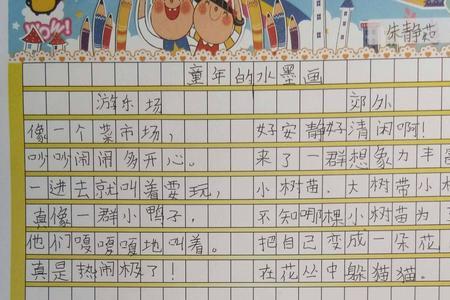 Wow!
朱静茹
童年的水墨画
游乐场
像一个菜市场，
吵吵闹闹多开心。
一进去就叫着要玩，
真像一群小鸭子，
他们嘎嘎嘎地叫着。
真是热闹极了！
郊外
好安静好清闲啊！
来了一群想象力丰
小树苗、大树带小
不知哪棵小树苗为
把自己变成一朵花
在花丛中躲猫猫。